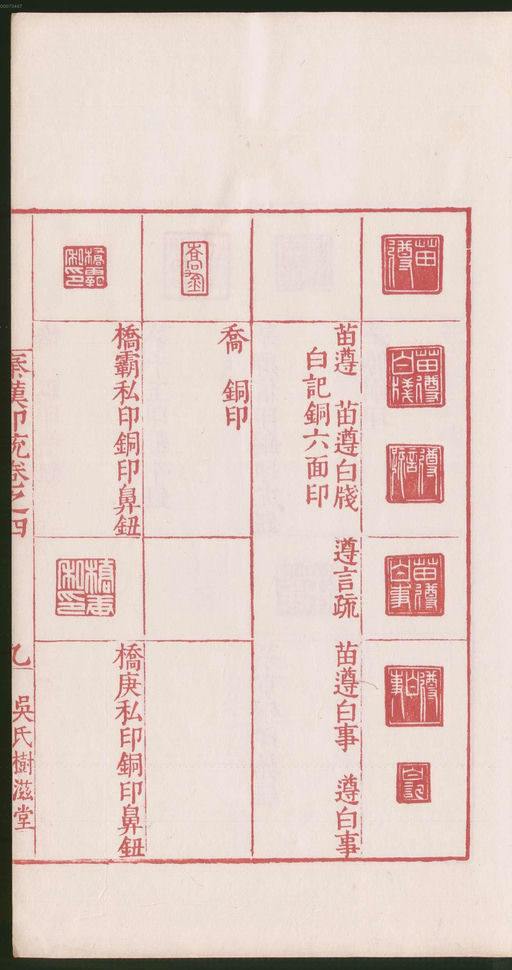 苗遵　苗遵白牋　遵言疏　苗遵白事　遵白事
白記銅六面印
喬　銅印
橋霸私印銅印鼻鈕
橋庚私印銅印鼻鈕
秦漢印統卷之四
乙　吳氏樹滋堂
00073467